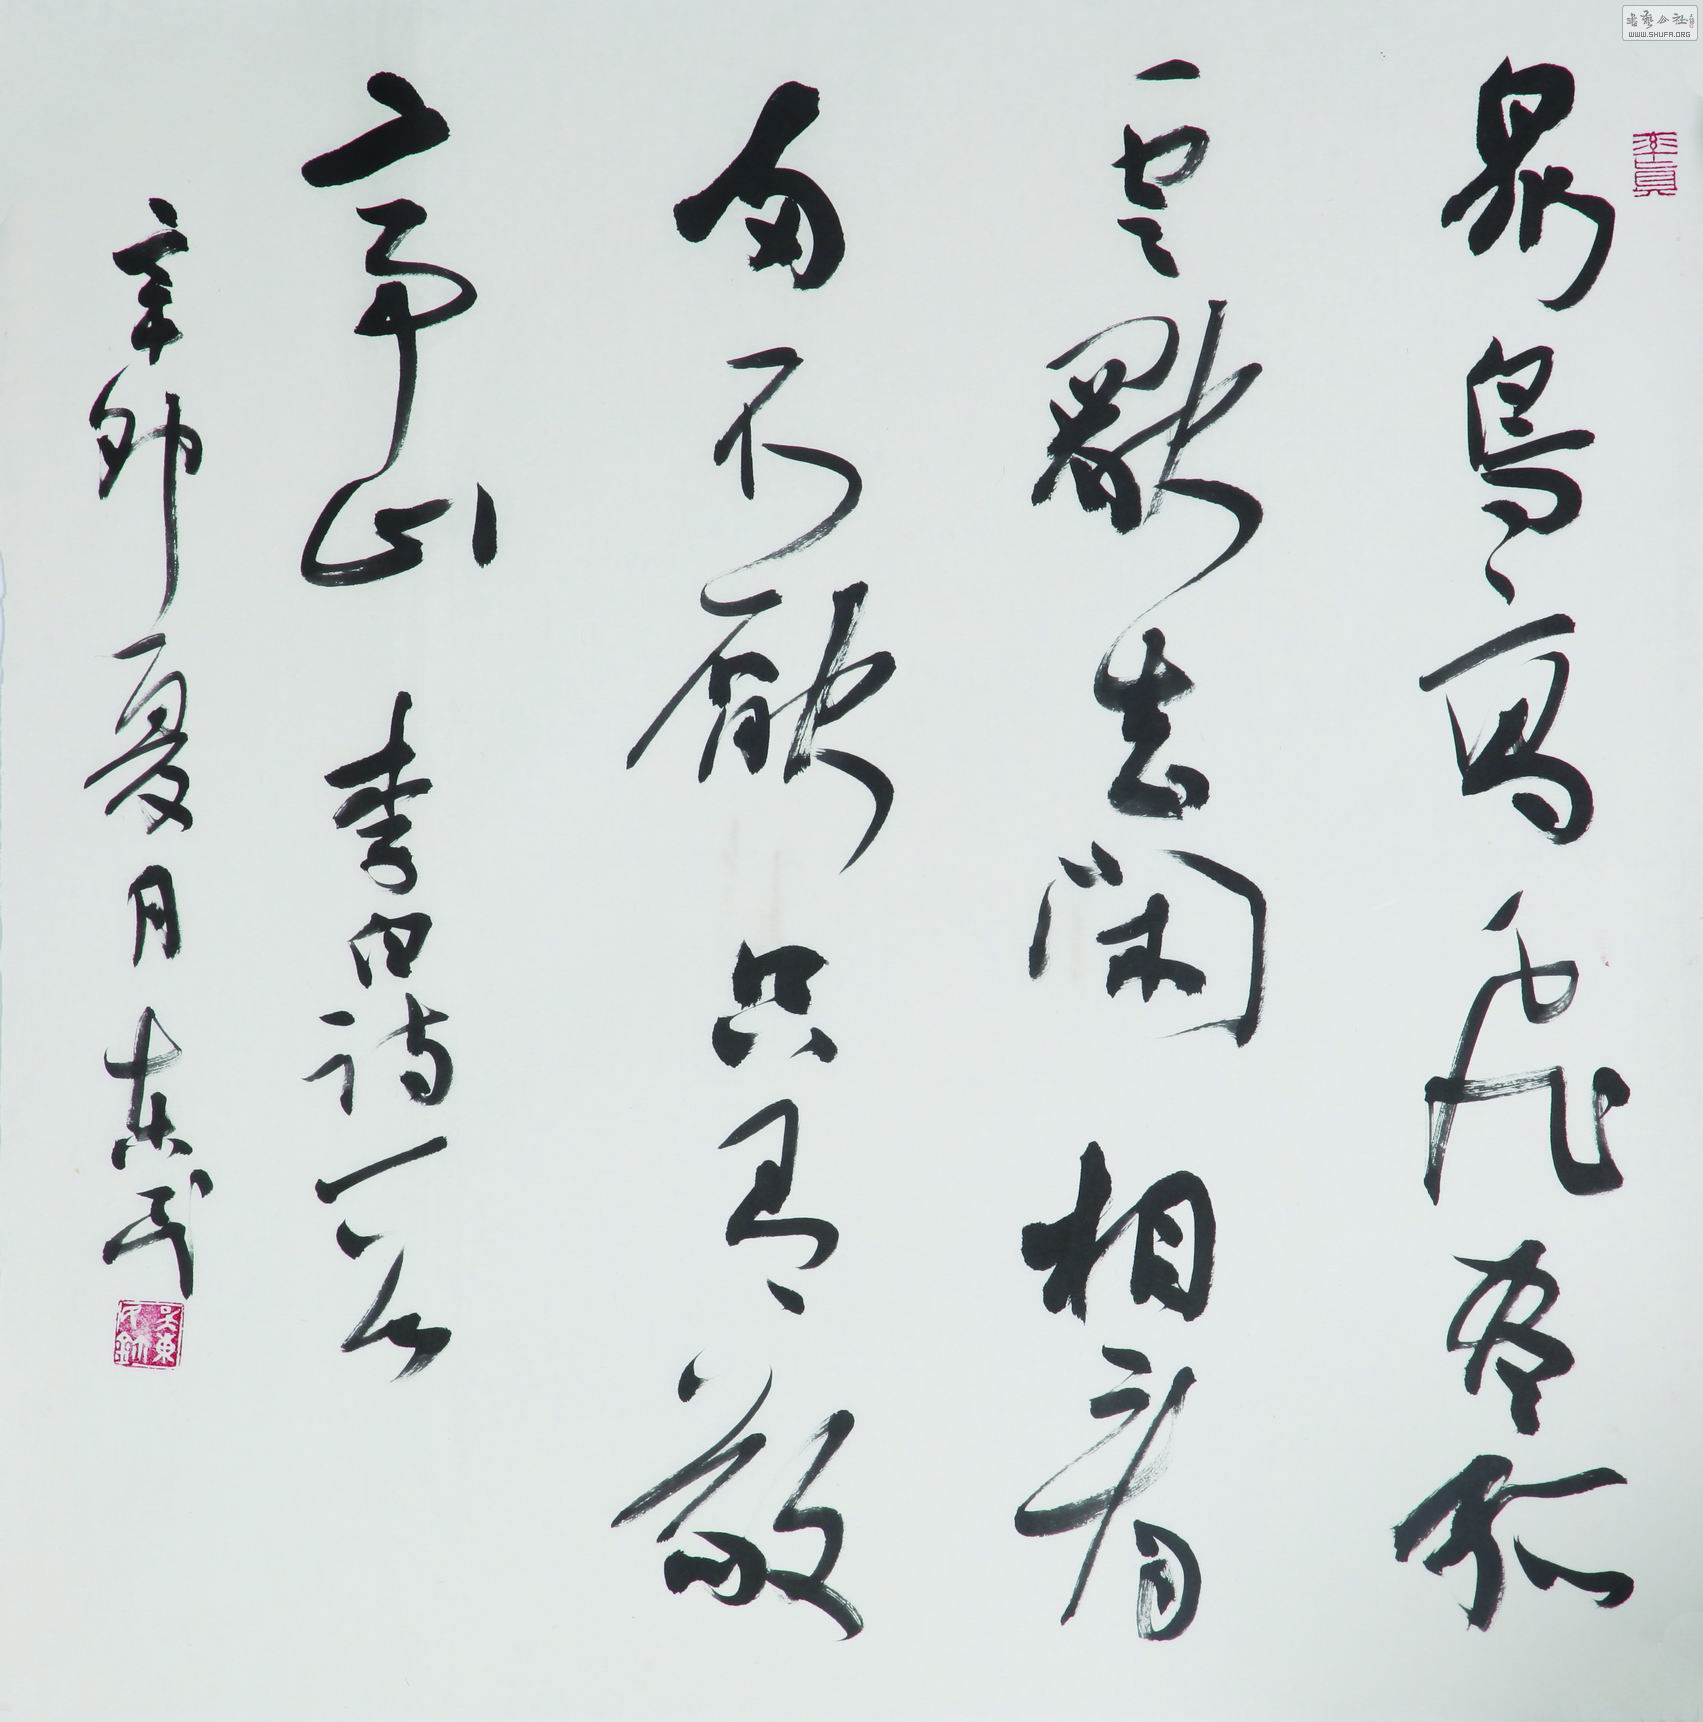 眾鳥高飛盡孤
雲獨去閑相看
兩不厭只有敬
亭山 李白詩一首
辛卯夏月東民
吴東民鉥
書藝公社
WWW.SHUFA.ORG